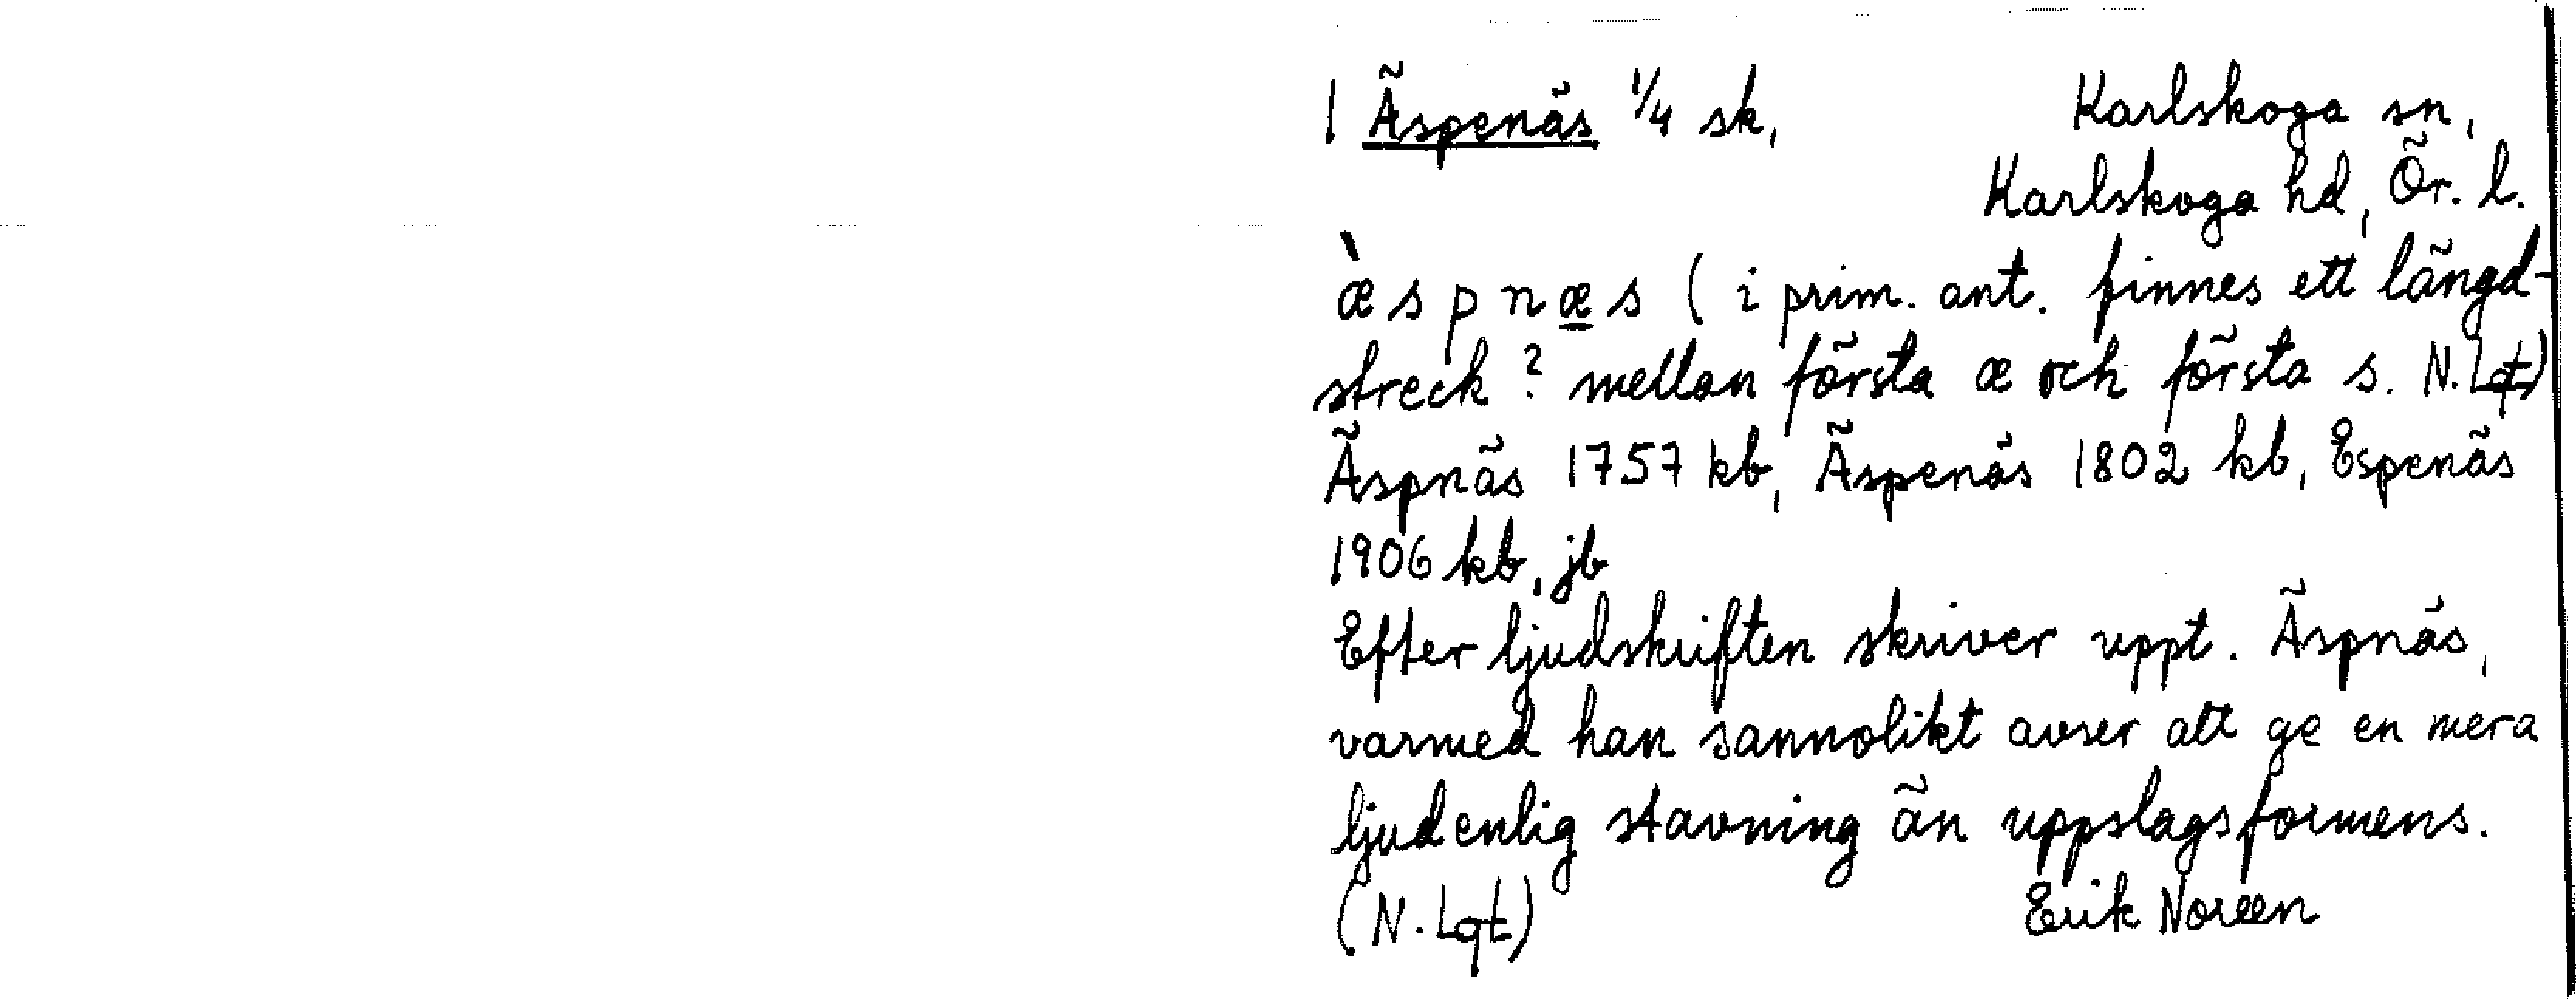 1 Äspenäs 1/4 sk, Karlskoga sn,
Karlskoga hd, Ör. l.
æ̀ s p n æ̲ s ( i prim. ant. finnes ett längd-
streck? mellan första æ och första s. N. Lqt)
Äspnäs 1757 kb, Äspenäs 1802 kb, Espenäs
1906 kb, jb
Efter ljudskriften skriver uppt. Äspnäs,
varmed han sannolikt avser att ge en mera
ljudenlig stavning än uppslagsformens.
(N. Lqt) Erik Noreen